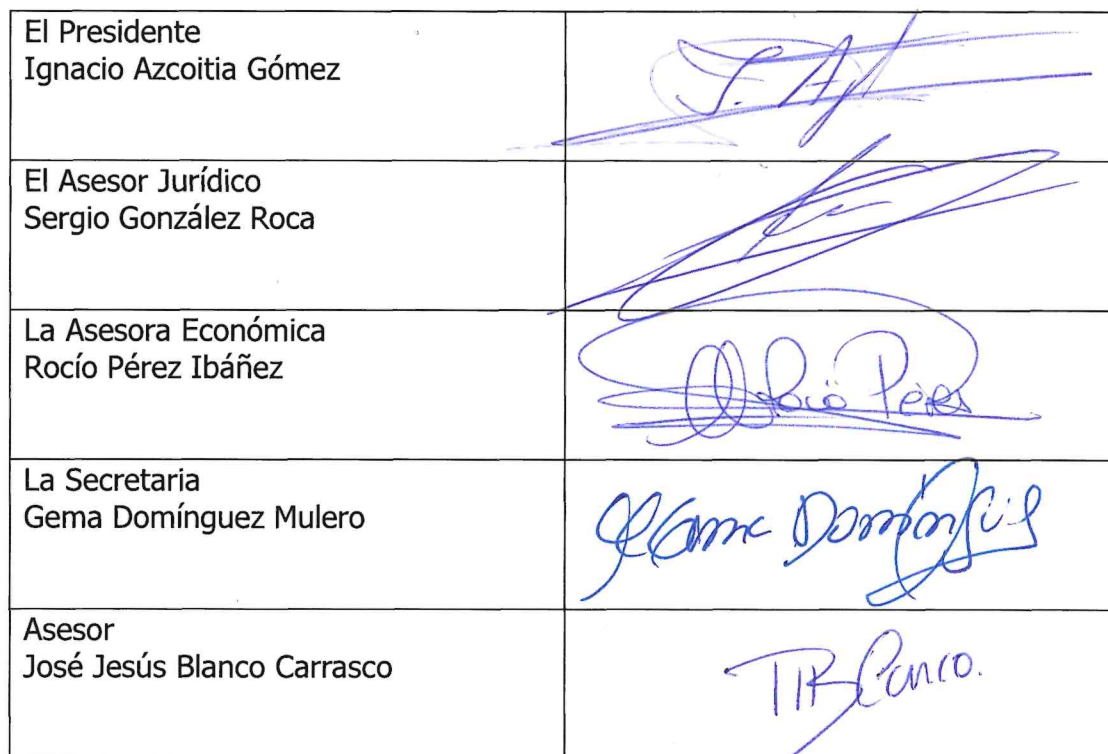 El Presidente
Ignacio Azcoitia Gómez
J. A
El Asesor Jurídico
Sergio González Roca
La Asesora Económica
Rocío Pérez Ibáñez
Rocío Pérez
La Secretaria
Gema Domínguez Mulero
Asesor
José Jesús Blanco Carrasco
Blanco.